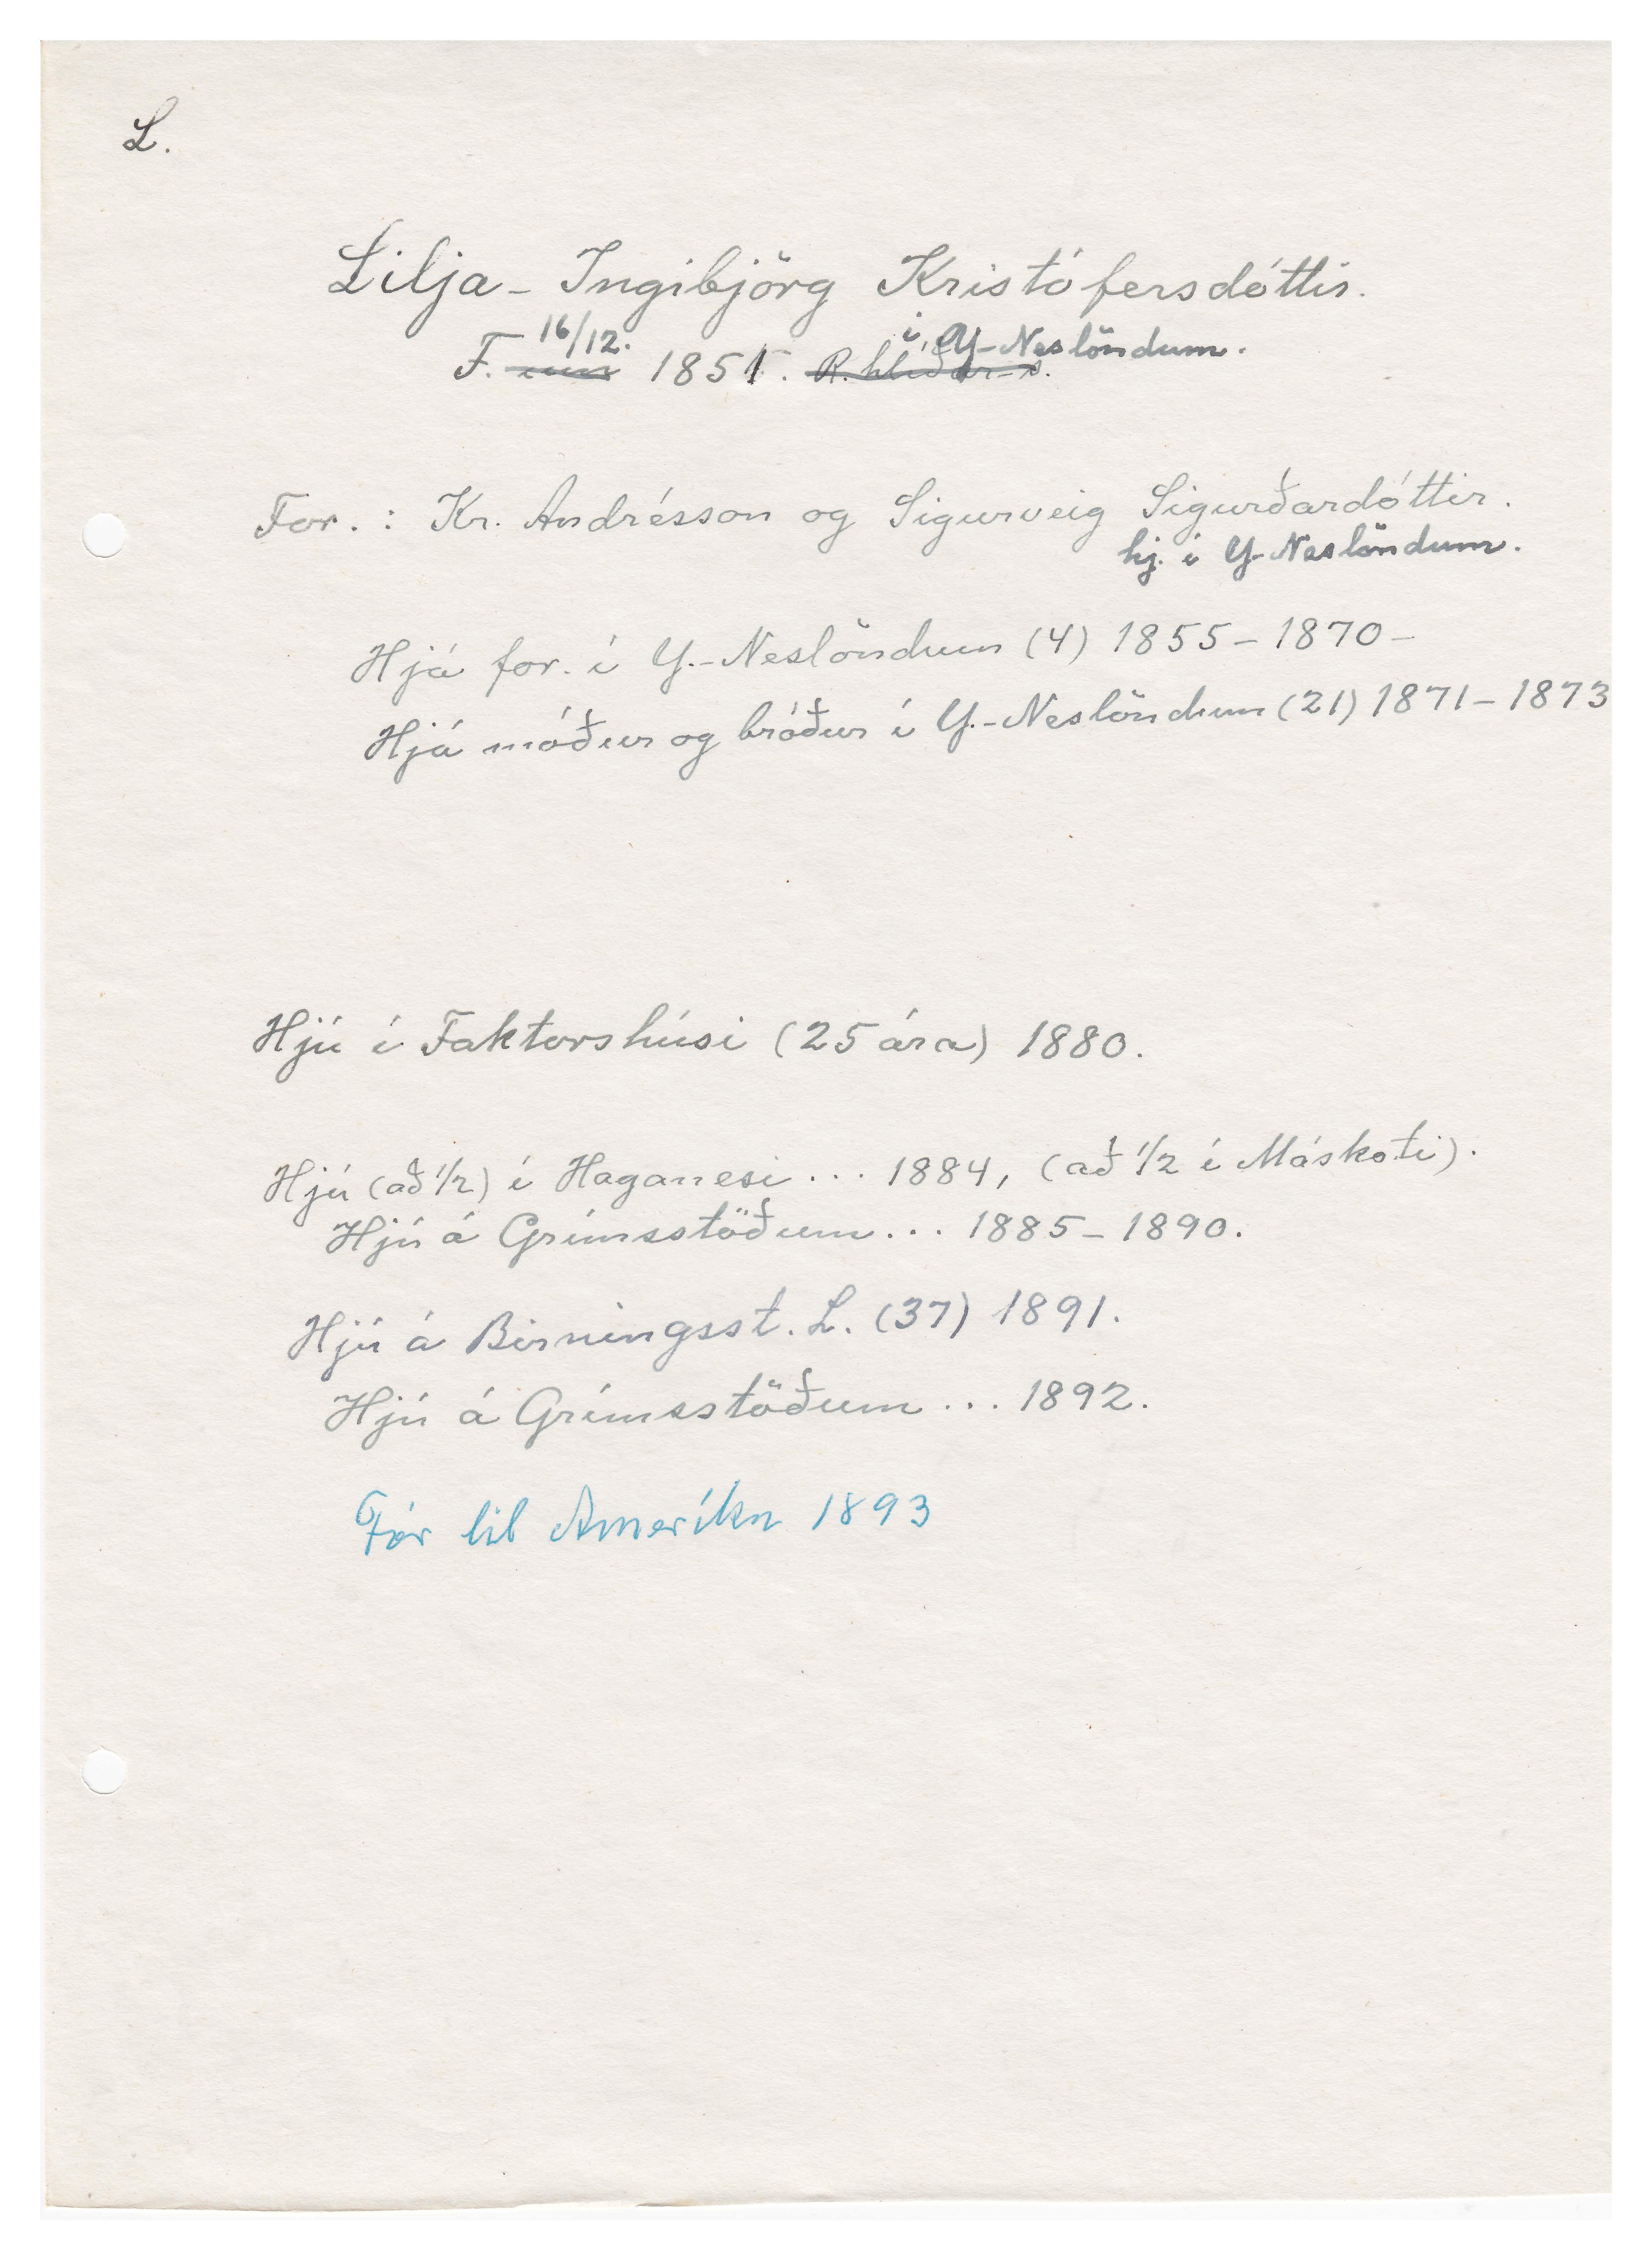 L.
Lilja - Ingibjörg Kristófersdóttir.
16/12. í Y-Neslöndum.
F. um 1851. R.hlíðar-s.
For. : Kr. Andrésson og Sigurveig Sigurðardóttir.
hj. í Y-Neslöndum.
Hjá for. í Y.-Neslöndum (4) 1855 - 1870 -
Hjá móður og bróður í Y.-Neslöndum (21) 1871 - 1873
Hjú í Faktorshúsi (25 ára) 1880.
Hjú (að 1/2) í Haganesi ... 1884, (að 1/2 í Máskoti).
Hjú á Grímsstöðum ... 1885 - 1890.
Hjú á Birningsst. L. (37) 1891.
Hjú á Grímsstöðum ... 1892.
Fór til Ameríku 1893